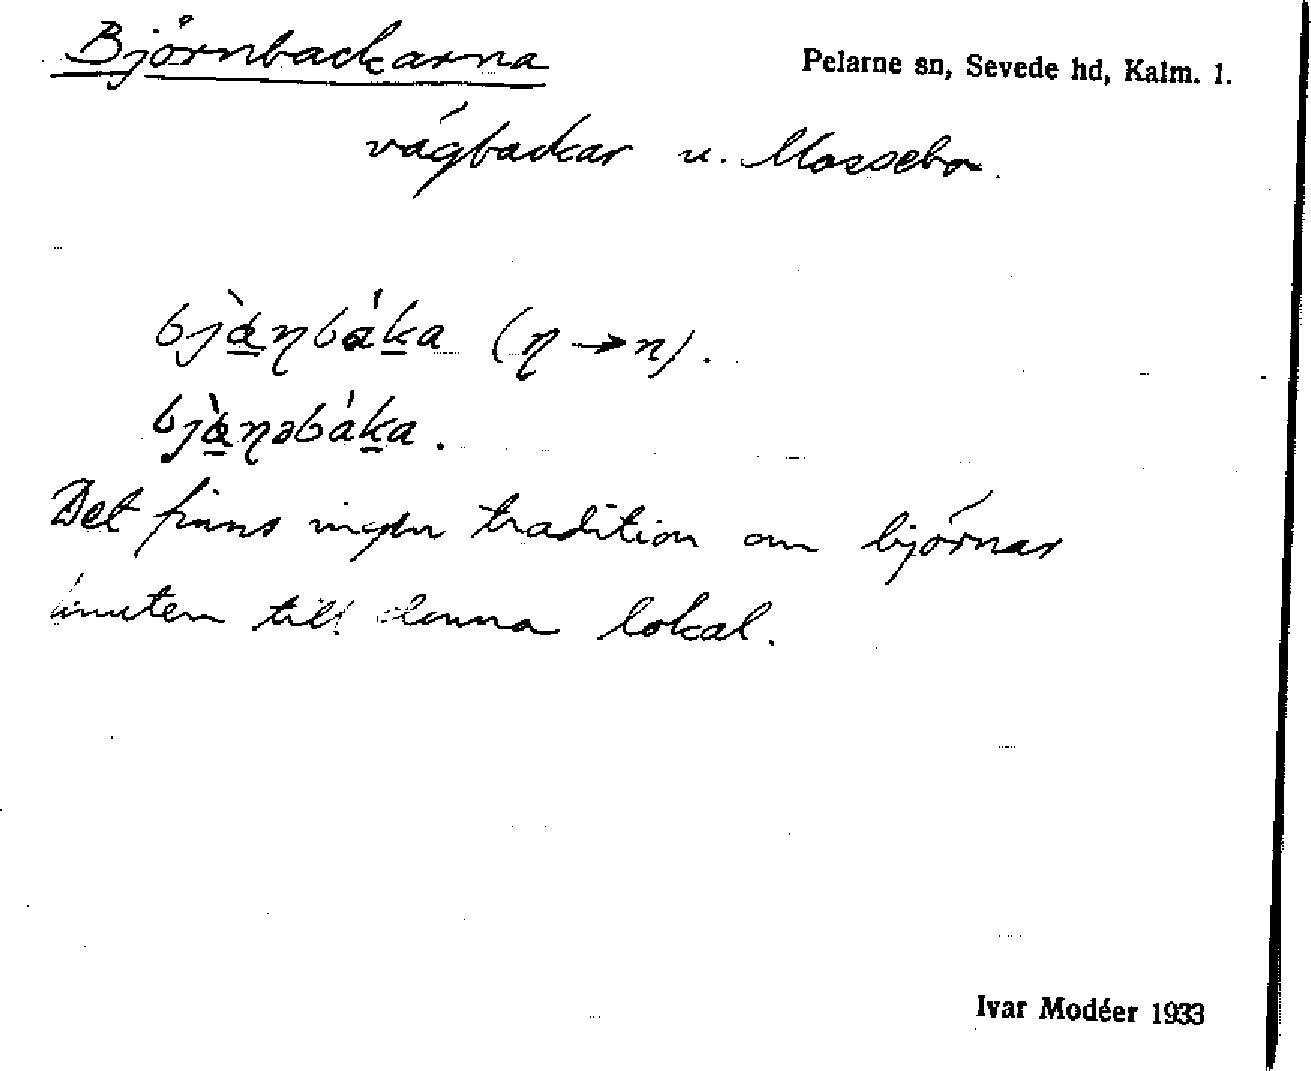 Björnbackarna
Pelarne sn, Sevede hd, Kalm. l.
vägbackar u. Mossebo.
Det finns ingen tradition om björnar
knuten till denna lokal.
Ivar Modéer 1933